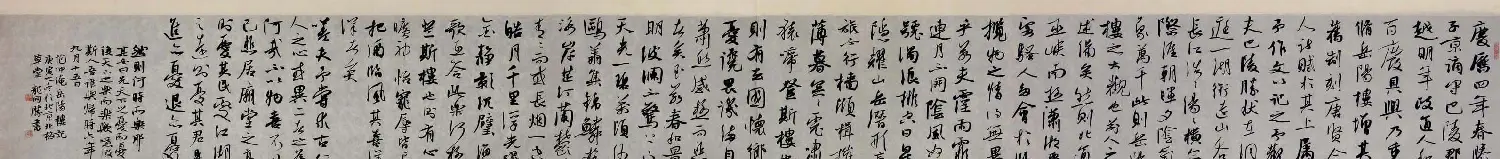 慶曆四年春滕
子京謫守巴陵郡
越明年政通人和
百廢具興乃重
修岳陽樓增其
舊制刻唐賢今
人詩賦於其上屬
予作文以記之予觀
夫巴陵勝狀在洞
庭一湖銜遠山吞
長江浩浩湯湯橫無
際涯朝暉夕陰氣
象萬千此則岳陽
樓之大觀也前人之
述備矣然則北通
巫峽南極瀟湘遷
客騷人多會於此
覽物之情得無異
乎若夫霪雨霏
連月不開陰風怒
號濁浪排空日星
隱耀山岳潛形商
旅不行檣傾楫摧
薄暮冥冥虎嘯
猿啼登斯樓也
則有去國懷鄉
憂讒畏譏滿目
蕭然感極而悲
者矣至若春和景
明波瀾不驚上下
天光一碧萬頃沙
鷗翔集錦鱗游
泳岸芷汀蘭郁郁
青青而或長煙一空
皓月千里浮光躍
金靜影沉璧漁
歌互答此樂何極
登斯樓也則有心
曠神怡寵辱皆忘
把酒臨風其喜洋
洋者矣
嗟夫予嘗求古仁
人之心或異二者之為
何哉不以物喜不以
己悲居廟堂之高
則憂其民處江湖
之遠則憂其君是
進亦憂退亦憂
然則何時而樂耶
其必曰先天下之憂而憂
後天下之樂而樂歟噫微
斯人吾誰與歸時六年
九月十五日
范仲淹岳陽樓記